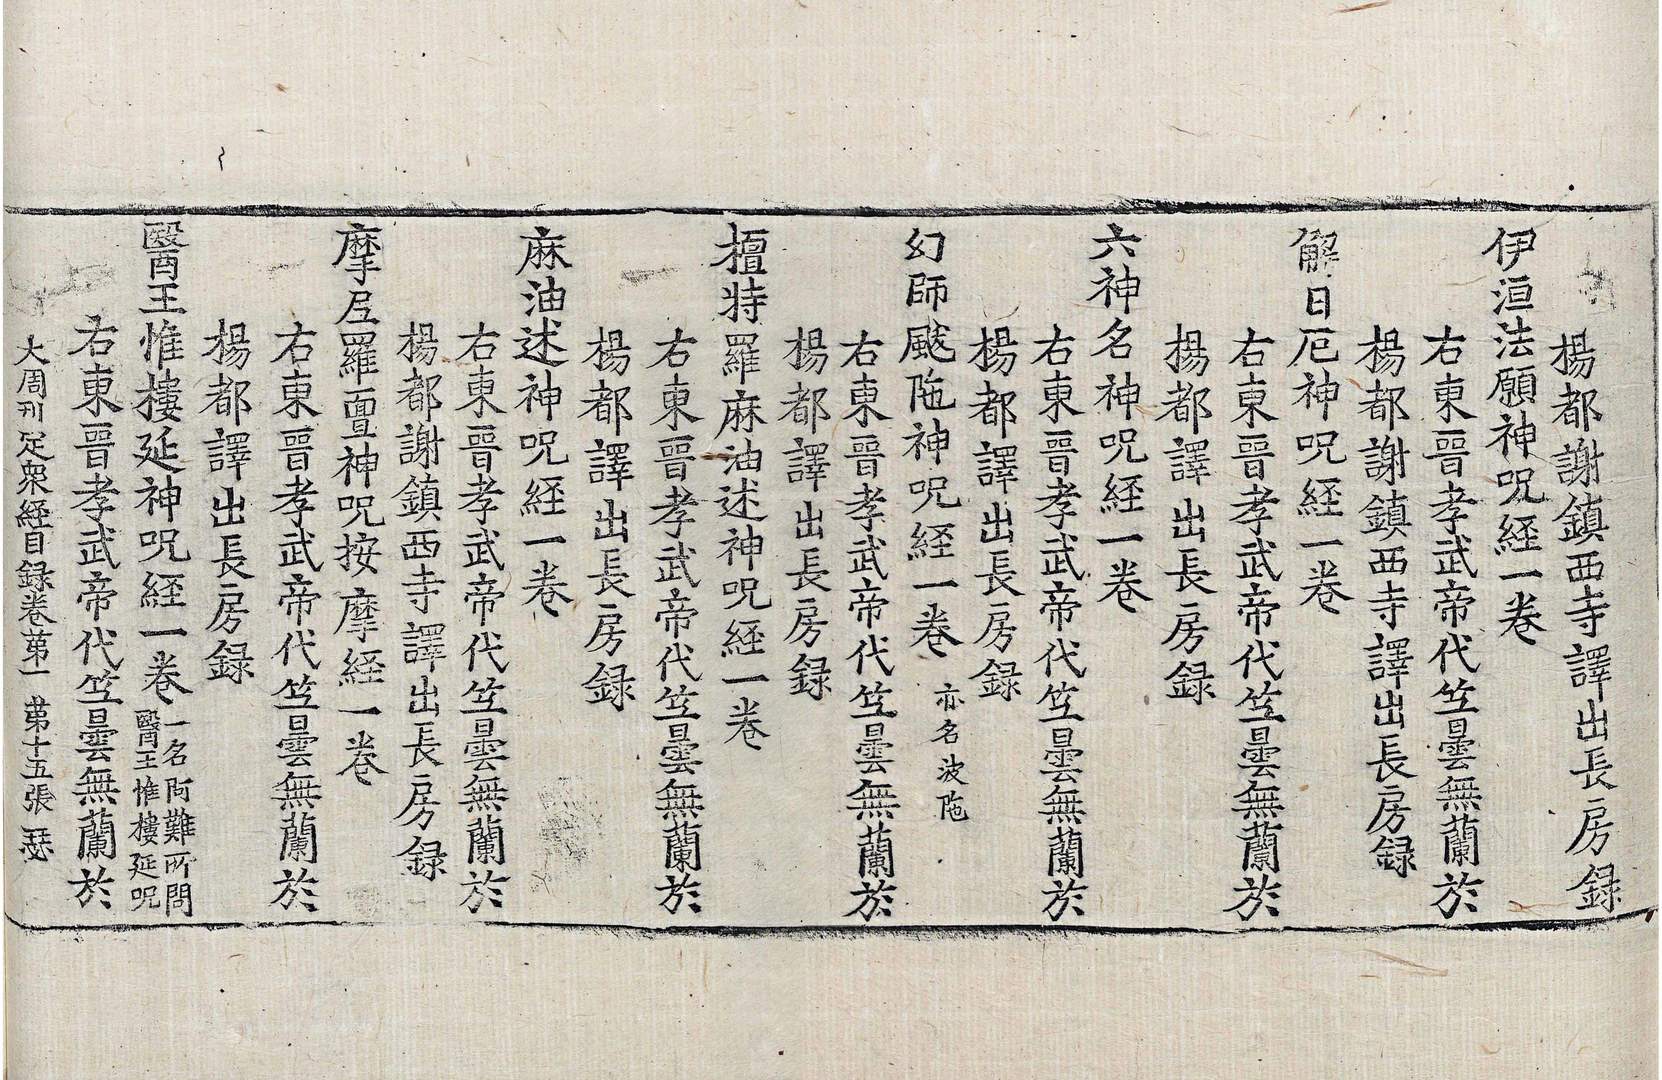 楊都謝鎮西寺譯出長房録
伊洹法願神呪経一卷
右東晉孝武帝代笁曇無蘭於
楊都謝鎮西寺譯出長房録
解日厄神呪経一卷
右東晉孝武帝代笁曇無蘭於
楊都譯出長房録
六神名神呪経一卷
右東晉孝武帝代笁曇無蘭於
楊都譯出長房録
幻師颰陁神呪経一卷 亦名波陁
右東晉孝武帝代笁曇無蘭於
楊都譯出長房録
檀特羅麻油述神呪経一卷
右東晉孝武帝代笁曇無蘭於
楊都譯出長房録
麻油述神呪経一卷
右東晉孝武帝代笁曇無蘭於
楊都謝鎮西寺譯出長房録
摩𡰱羅亶神呪按摩経一卷
右東晉孝武帝代笁曇無蘭於
楊都譯出長房録
醫王惟樓延神呪経一卷 一名阿難所問
醫王惟樓延呪
右東晉孝武帝代笁曇無蘭於
大周刊定衆経目録卷苐一 苐十五張 瑟